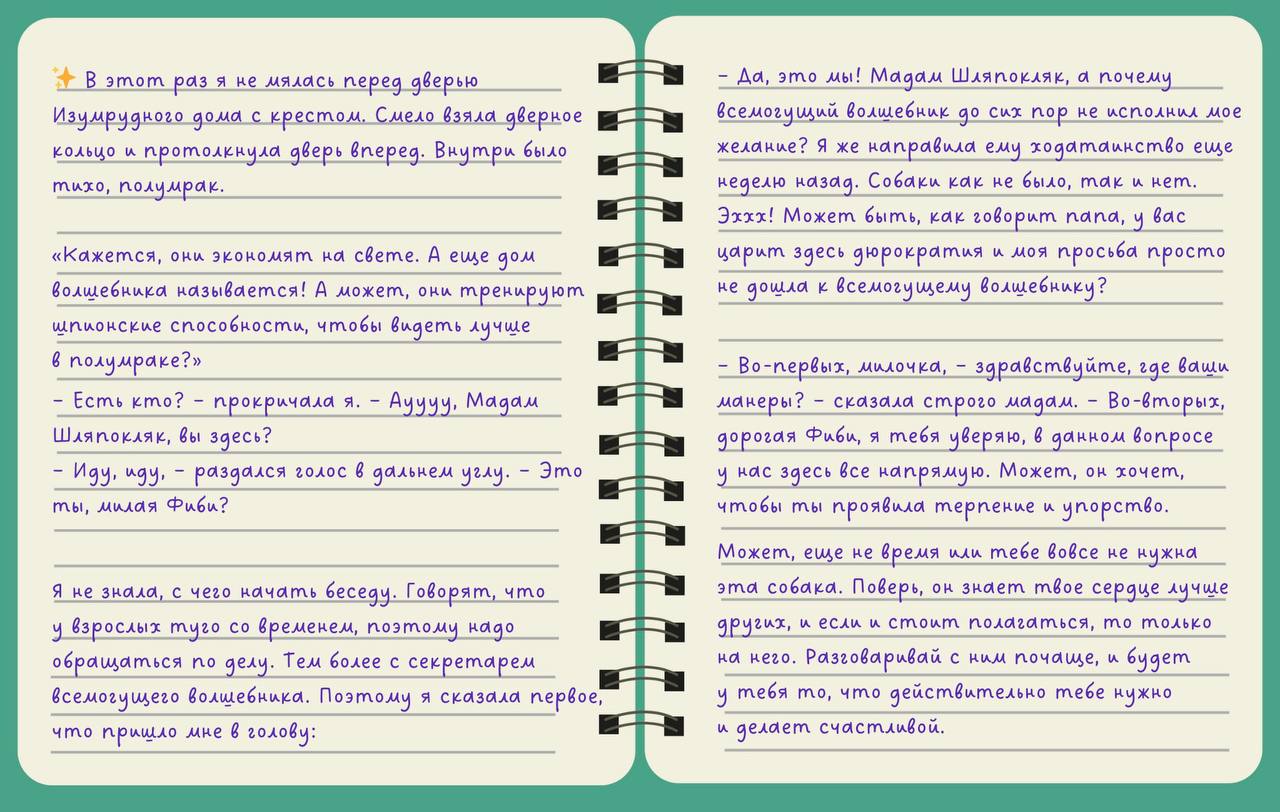 ✨ В этот раз я не мялась перед дверью
Изумрудного дома с крестом. Смело взяла дверное
кольцо и протолкнула дверь вперед. Внутри было
тихо, полумрак.
«Кажется, они экономят на свете. А еще дом
волшебника называется! А может, они тренируют
шпионские способности, чтобы видеть лучше
в полумраке?»
– Есть кто? – прокричала я. – Ауууу, Мадам
Шляпокляк, вы здесь?
– Иду, иду, – раздался голос в дальнем углу. – Это
ты, милая Фиби?
Я не знала, с чего начать беседу. Говорят, что
у взрослых туго со временем, поэтому надо
обращаться по делу. Тем более с секретарем
всемогущего волшебника. Поэтому я сказала первое,
что пришло мне в голову:
– Да, это мы! Мадам Шляпокляк, а почему
всемогущий волшебник до сих пор не исполнил мое
желание? Я же направила ему ходатаинство еще
неделю назад. Собаки как не было, так и нет.
Эххх! Может быть, как говорит папа, у вас
царит здесь дюрократия и моя просьба просто
не дошла к всемогущему волшебнику?
– Во-первых, милочка, – здравствуйте, где ваши
манеры? – сказала строго мадам. – Во-вторых,
дорогая Фиби, я тебя уверяю, в данном вопросе
у нас здесь все напрямую. Может, он хочет,
чтобы ты проявила терпение и упорство.
Может, еще не время или тебе вовсе не нужна
эта собака. Поверь, он знает твое сердце лучше
других, и если и стоит полагаться, то только
на него. Разговаривай с ним почаще, и будет
у тебя то, что действительно тебе нужно
и делает счастливой.